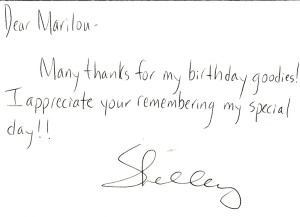 Dear Marilou-
Many thanks for my birthday goodies!
I appreciate your remembering my special
day!!
Shelley